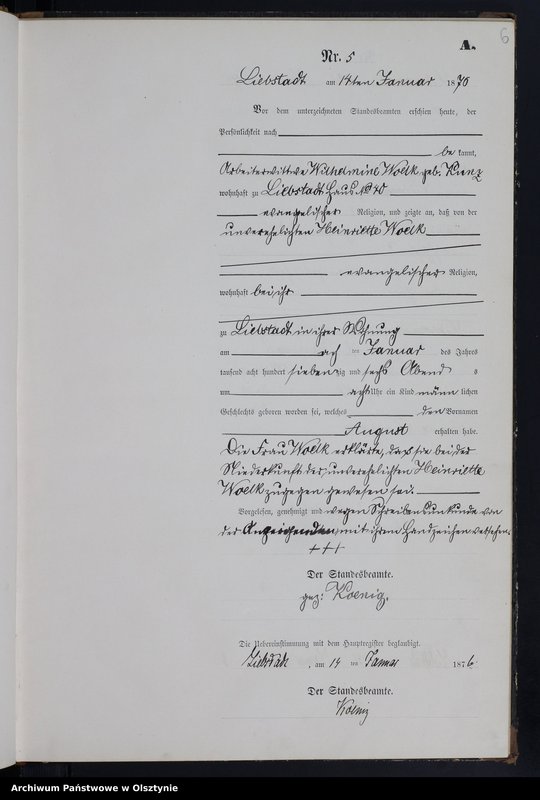 6
A.
Nr. 5
Liebstadt am 14ten Januar 1876
Vor dem unterzeichneten Standesbeamten erschien heute, der
Persönlichkeit nach
be kannt,
Arbeiterwittwe Wilhelmine Woelk geb. Kunz
wohnhaft zu Liebstadt Haus No 40
evangelischer Religion, und zeigte an, daß von der
unverehelichten Heinriette Woelk
evangelischer Religion,
wohnhaft bei ihr
zu Liebstadt in ihrer Wohnung
am ten Januar des Jahres
tausend acht hundert siebenzig und sechs Abend s
um acht Uhr ein Kind männ lichen
Geschlechts geboren worden sei, welches den Vornamen
August erhalten habe.
Die Frau Woelk erklärte, daß sie bei der
Niederkunft der unverehelichten Heinriette
Woelk zugegen gewesen sei.
Vorgelesen, genehmigt und wegen Schreibensunkunde von
der Anzeigenden mit ihrem Handzeichen versehen.
+++
Der Standesbeamte.
gez: Koenig.
Die Uebereinstimmung mit dem Hauptregister beglaubigt.
Liebstadt, am 14 ten Januar 1876
Der Standesbeamte.
Koenig
Archiwum Państwowe w Olsztynie